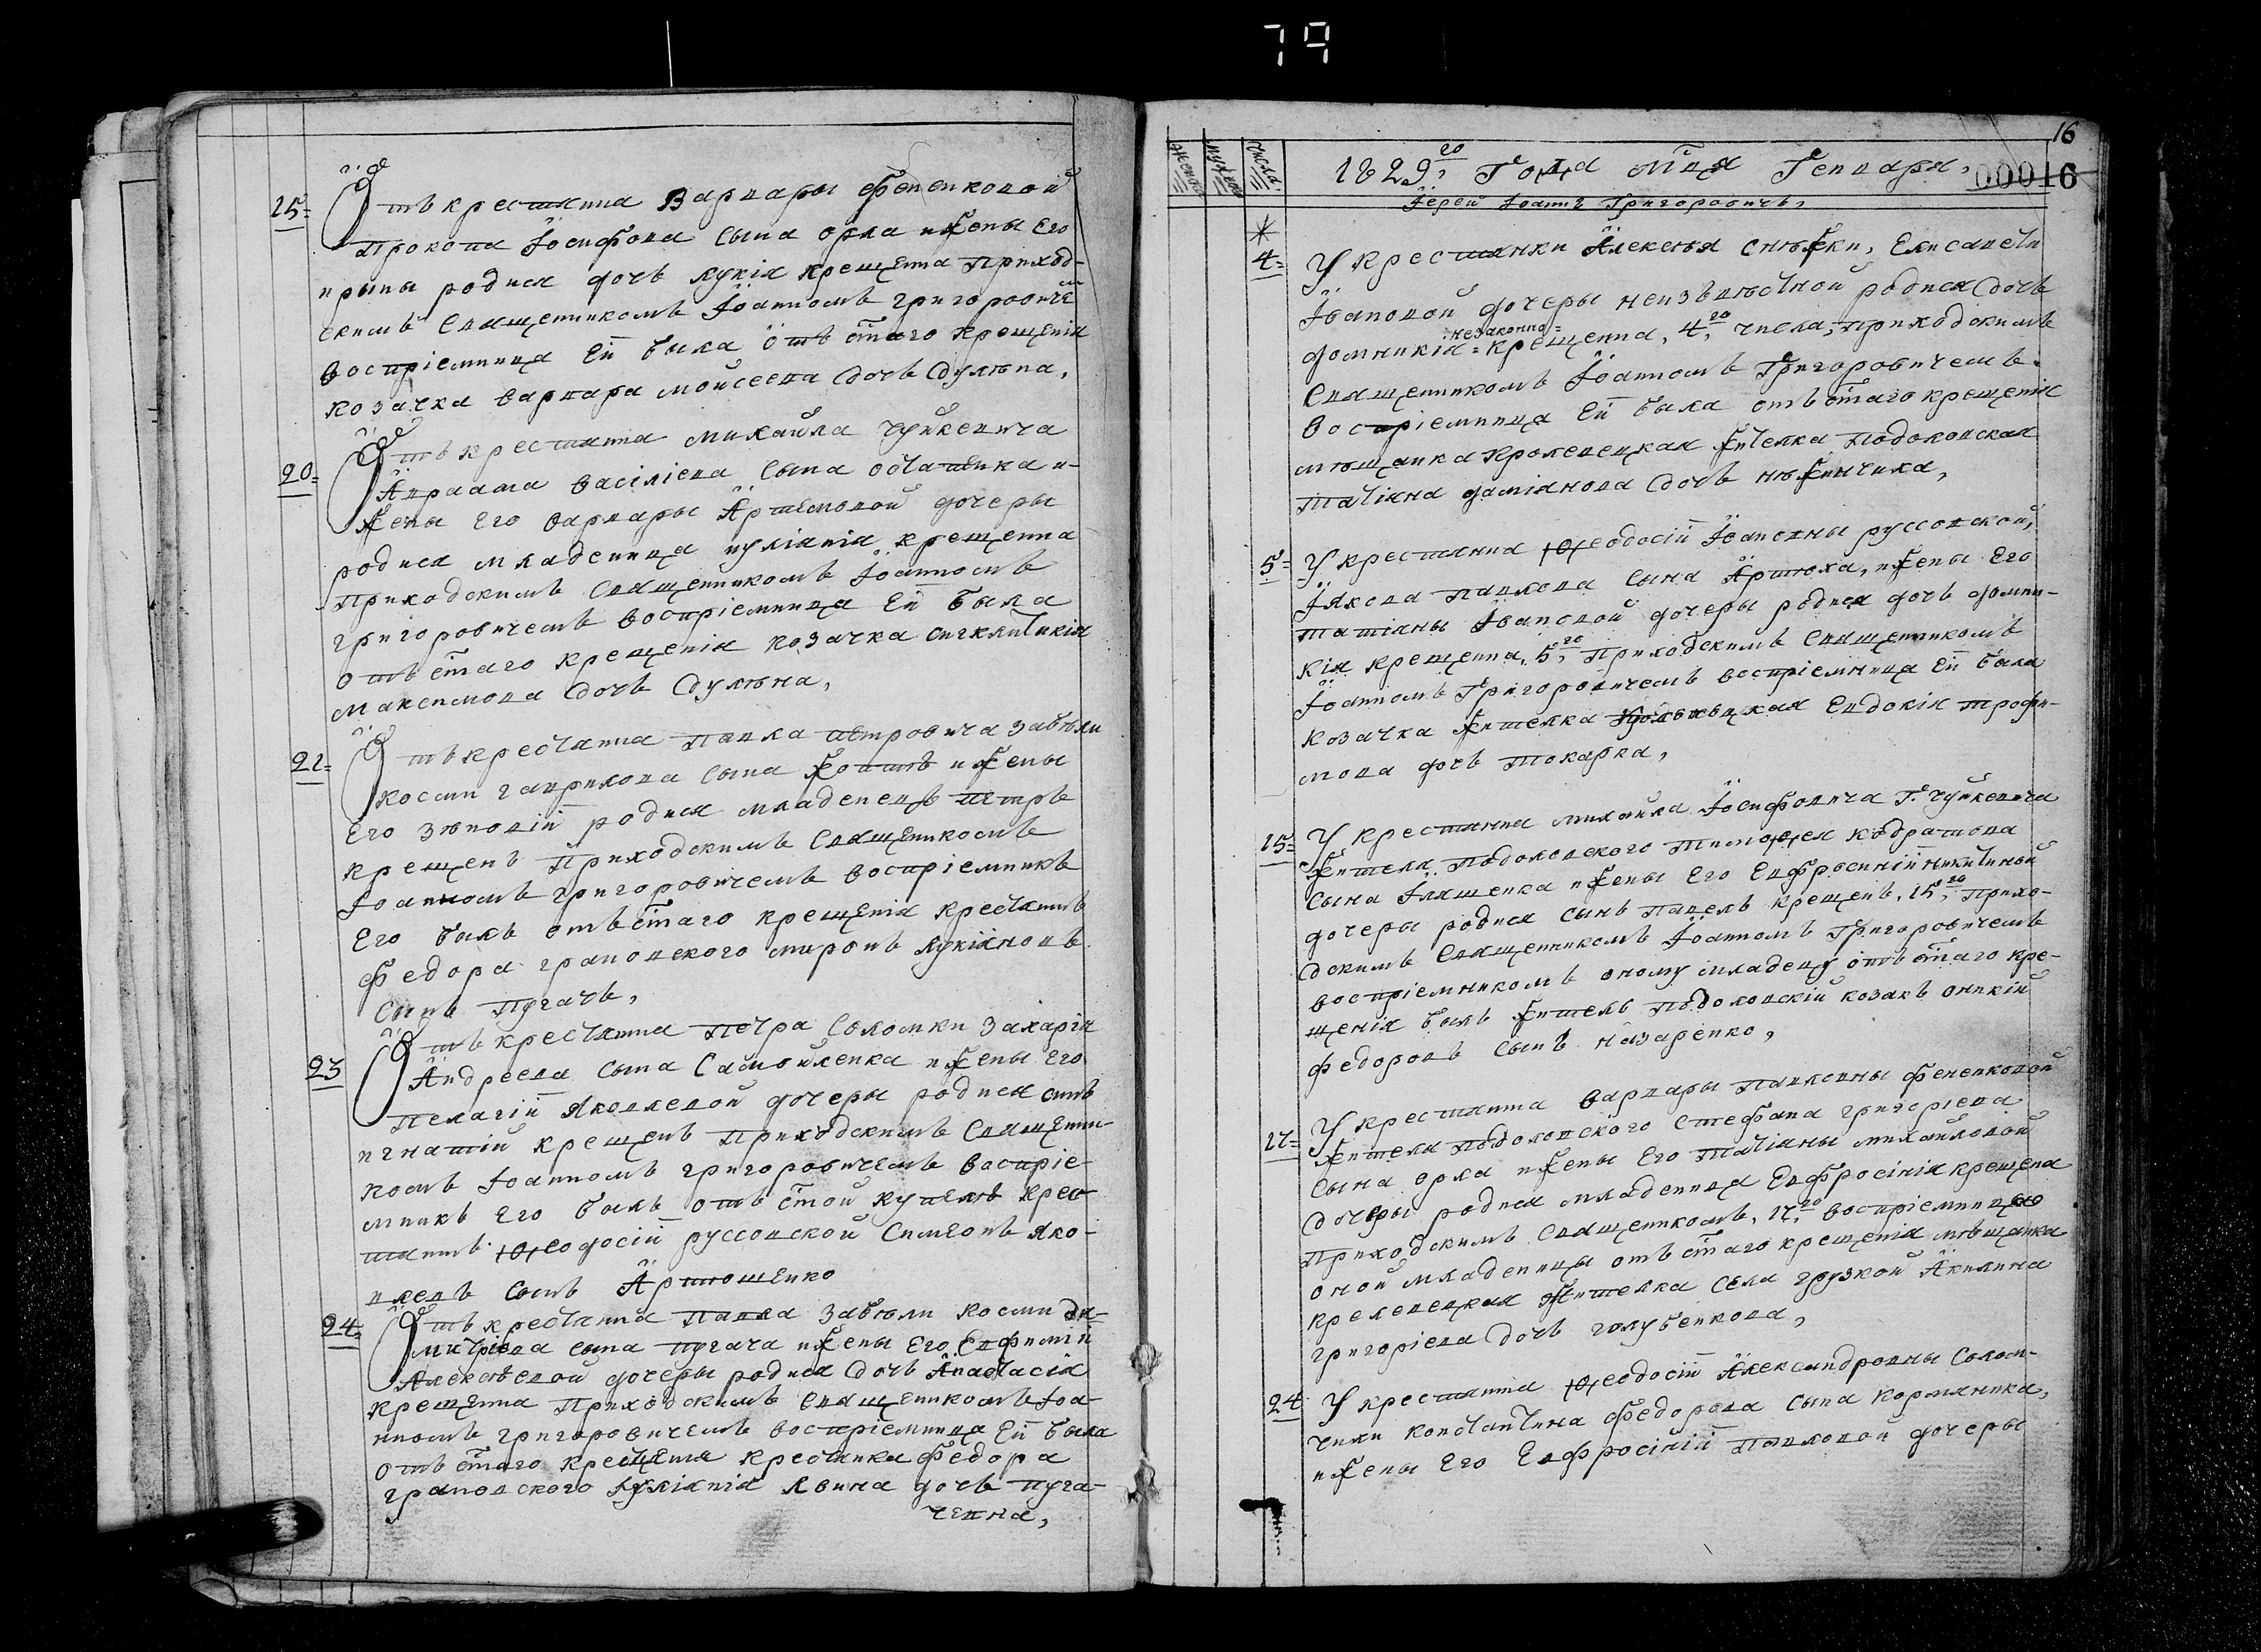 79
15=
Отъ крестянина Варвары Фененковой
Прокопа Іосифова сына орла иЖены Его
ирины родися дочь лукія крещенна Приход-
скимъ Священникомъ Іоанномъ григоровиче
воспріемница Ей была отъ стаго крещенія
козачка варвара мойсеева дочь дулѣпа,
20=
Отъ крестянина михайла чуйкевича
Авраама василіева сына осташенка и-
Жены Его варвары Артемовой дочеры
родися младеница иуліанія крещенна
Приходскимъ Священникомъ Іоанномъ
григоровичемъ воспріемница Ей была
отъ стаго крещенія козачка сигклитикія
максимова дочь дулѣна,
21=
Отъ крестянина павла петровича забѣли
космы гаврилова сына иЖены
Его зѣновіи родися младенецъ Петръ
крещенъ Приходскимъ Священникомъ
Іоанномъ григоровичемъ воспріемникъ
Его былъ отъ стаго крещенія крестянинъ
федора грановского миронъ лукіановъ
сынъ пугачъ,
23
Отъ крестянина Петра Соломки Захаріи
Андреева сына Самойленка иЖены Его
Пелагіи Яковлевой дочеры родися сынъ
игнатій крещенъ Приходскимъ Священни-
комъ Іоанномъ григоровичемъ воспріе-
мникъ Его былъ отъ стой купели крес-
тянинъ Ѳеодосіи руссовской Симеонъ Яко-
влевъ сынъ Артюшенко
24=
Отъ крестянина Павла забѣли космы ди-
митріева сына пугача иЖены Его Евфиміи
Алексѣевой дочеры родися дочь Анастасія
крещенна Приходскимъ Священникомъ Іоа-
нномъ григоровичемъ воспріемница Ей была
отъ стаго крещенія крестянка федора
грановского Іуліанія Явина дочь пуга-
чевна,
16
00016
числа
1829го, Года мца Генваря,
Іерей Іоаннъ Григоровичъ,
4=
У крестянки Алексѣя снѣжки, Елисавети
Івановой дочеры неизвѣстной родися дочь
незаконно=
домникія=крещенна, 4го, числа, Приходскимъ
Священникомъ Іоанномъ Григоровичемъ.
Воспріемница Ей была отъ стаго крещенія
мѣщанка кролевецкая Жителка Подоловская
Татіяна даміянова дочь нѣжинчиха,
5=
У крестянина Ѳеодосіи Іоановны руссовской,
Іякова Павлова сына Артюха, иЖены Его
татіяны Івановой дочеры родися дочь домни-
кія крещенна, 5го, Приходскимъ Священникомъ
Іоанномъ Григоровичемъ воспріемница Ей была
козачка Жителка Евдокія трофи-
мова дочь токарка,
15=
У крестянина михаила Іосифовича Г. чуйкевича
Жителя Подоловского Тимоѳея кодратова
сына Іляшенка иЖены Его Евфросиніи никитиной
дочеры родися сынъ Павелъ крещенъ, 15го, Прихо-
дскимъ Священникомъ Іоанномъ Григоровичемъ
воспріемникомъ оному младенцу отъ стаго кре-
щенія былъ Житель Подоловскій козакъ оникій
федоровъ сынъ назаренко,
17=
У крестянина Варвары Павловны фененковой
Жителя Подоловского Стефана григоріева
сына орла иЖены Его Татіяны михайловой
дочеры родися младеница Евфросинія крещена
Приходскимъ Священникомъ, 17го, воспріемницею
оной младеницы отъ стаго крещенія мѣщанка
кролевецкая Жителка села грузкой Акилина
григоріева дочь голубенкова,
24
У крестянина Ѳеодосіи Александровны Солом-
чихи Константина Федорова сына кормяника,
иЖены Его Евфросиніи Павловой дочеры